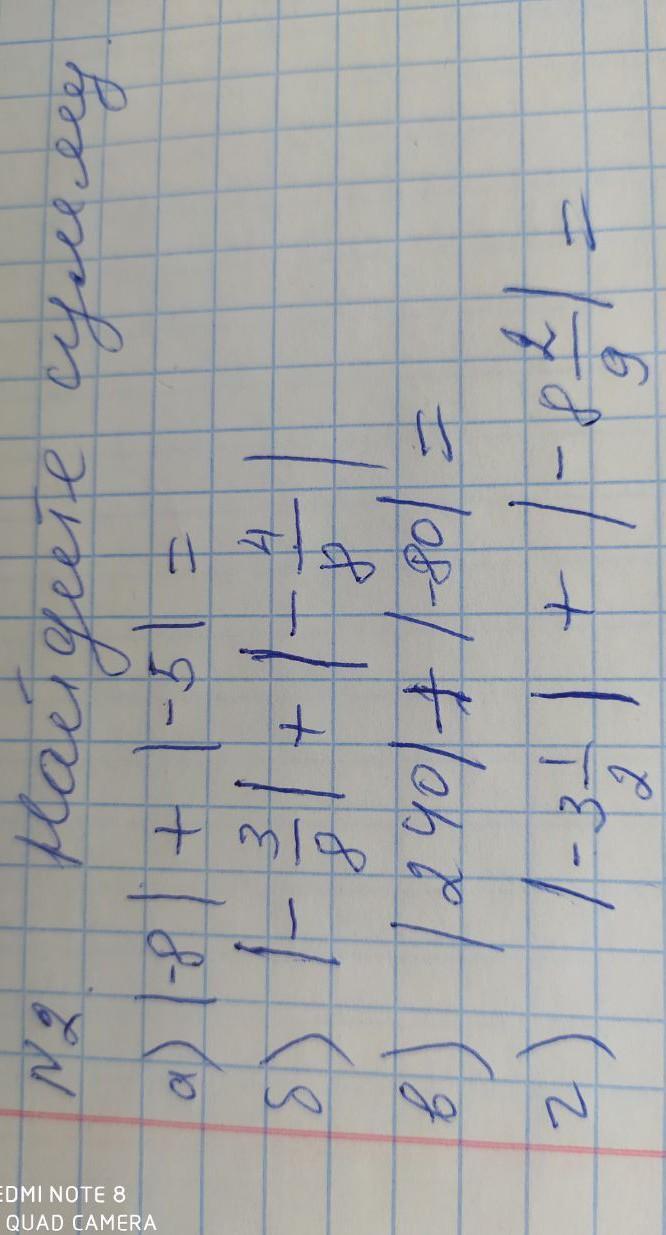 N2 Найдите сумму
а) |-8| + |-5| =
б) |-3/8| + |-4/8|
в) |240| + |-80| =
г) |-3 1/2| + |-8 2/9| =
REDMI NOTE 8
QUAD CAMERA